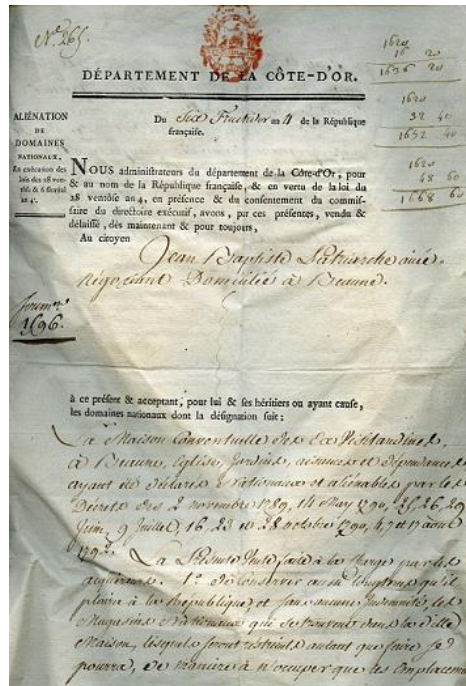 N.º 265.
DÉPARTEMENT DE LA CÔTE-D'OR.
1620
16 20
1636 20
1620
32 40
1652 40
1620
48 60
1668 60
ALIÉNATION
DE
DOMAINES
NATIONAUX,
En exécution des
lois des 28 ven-
tôse & 6 floréal
an 4.
Du Six Fructidor an 4 de la République
française.
NOUS administrateurs du département de la Côte-d'Or, pour
& au nom de la République française, & en vertu de la loi du
28 ventôse an 4, en présence & du consentement du commis-
saire du directoire exécutif, avons, par ces présentes, vendu &
délaissé, dès maintenant & pour toujours,
Au citoyen
Jean Baptiste Patriarche ainé.
Négociant Domicilié à Beaune.
1696.
à ce présent & acceptant, pour lui & ses héritiers ou ayant cause,
les domaines nationaux dont la désignation suit :
La Maison Conventuelle des Ex Visitandines,
à Beaune, Eglise, Jardins, aisances et dépendances
ayant été déclarés nationaux et aliénables par les
Décrets des 2 novembre 1789, 14 May 1790, 25, 26, 29
Juin, 9 Juillet, 16, 23 et 28 octobre 1790, 4, 7 et 17 aoust
1792. La Présente Vente faite à la charge par les
acquéreurs. 1º de conserver aussi longtems qu'il
plaira à la République, et sans aucune Indemnité, les
Magasins Nationaux qui se trouvent dans la dite
Maison, lesquels seront restraints autant que faire se
pourra, de manière à n'occuper que les emplacemen